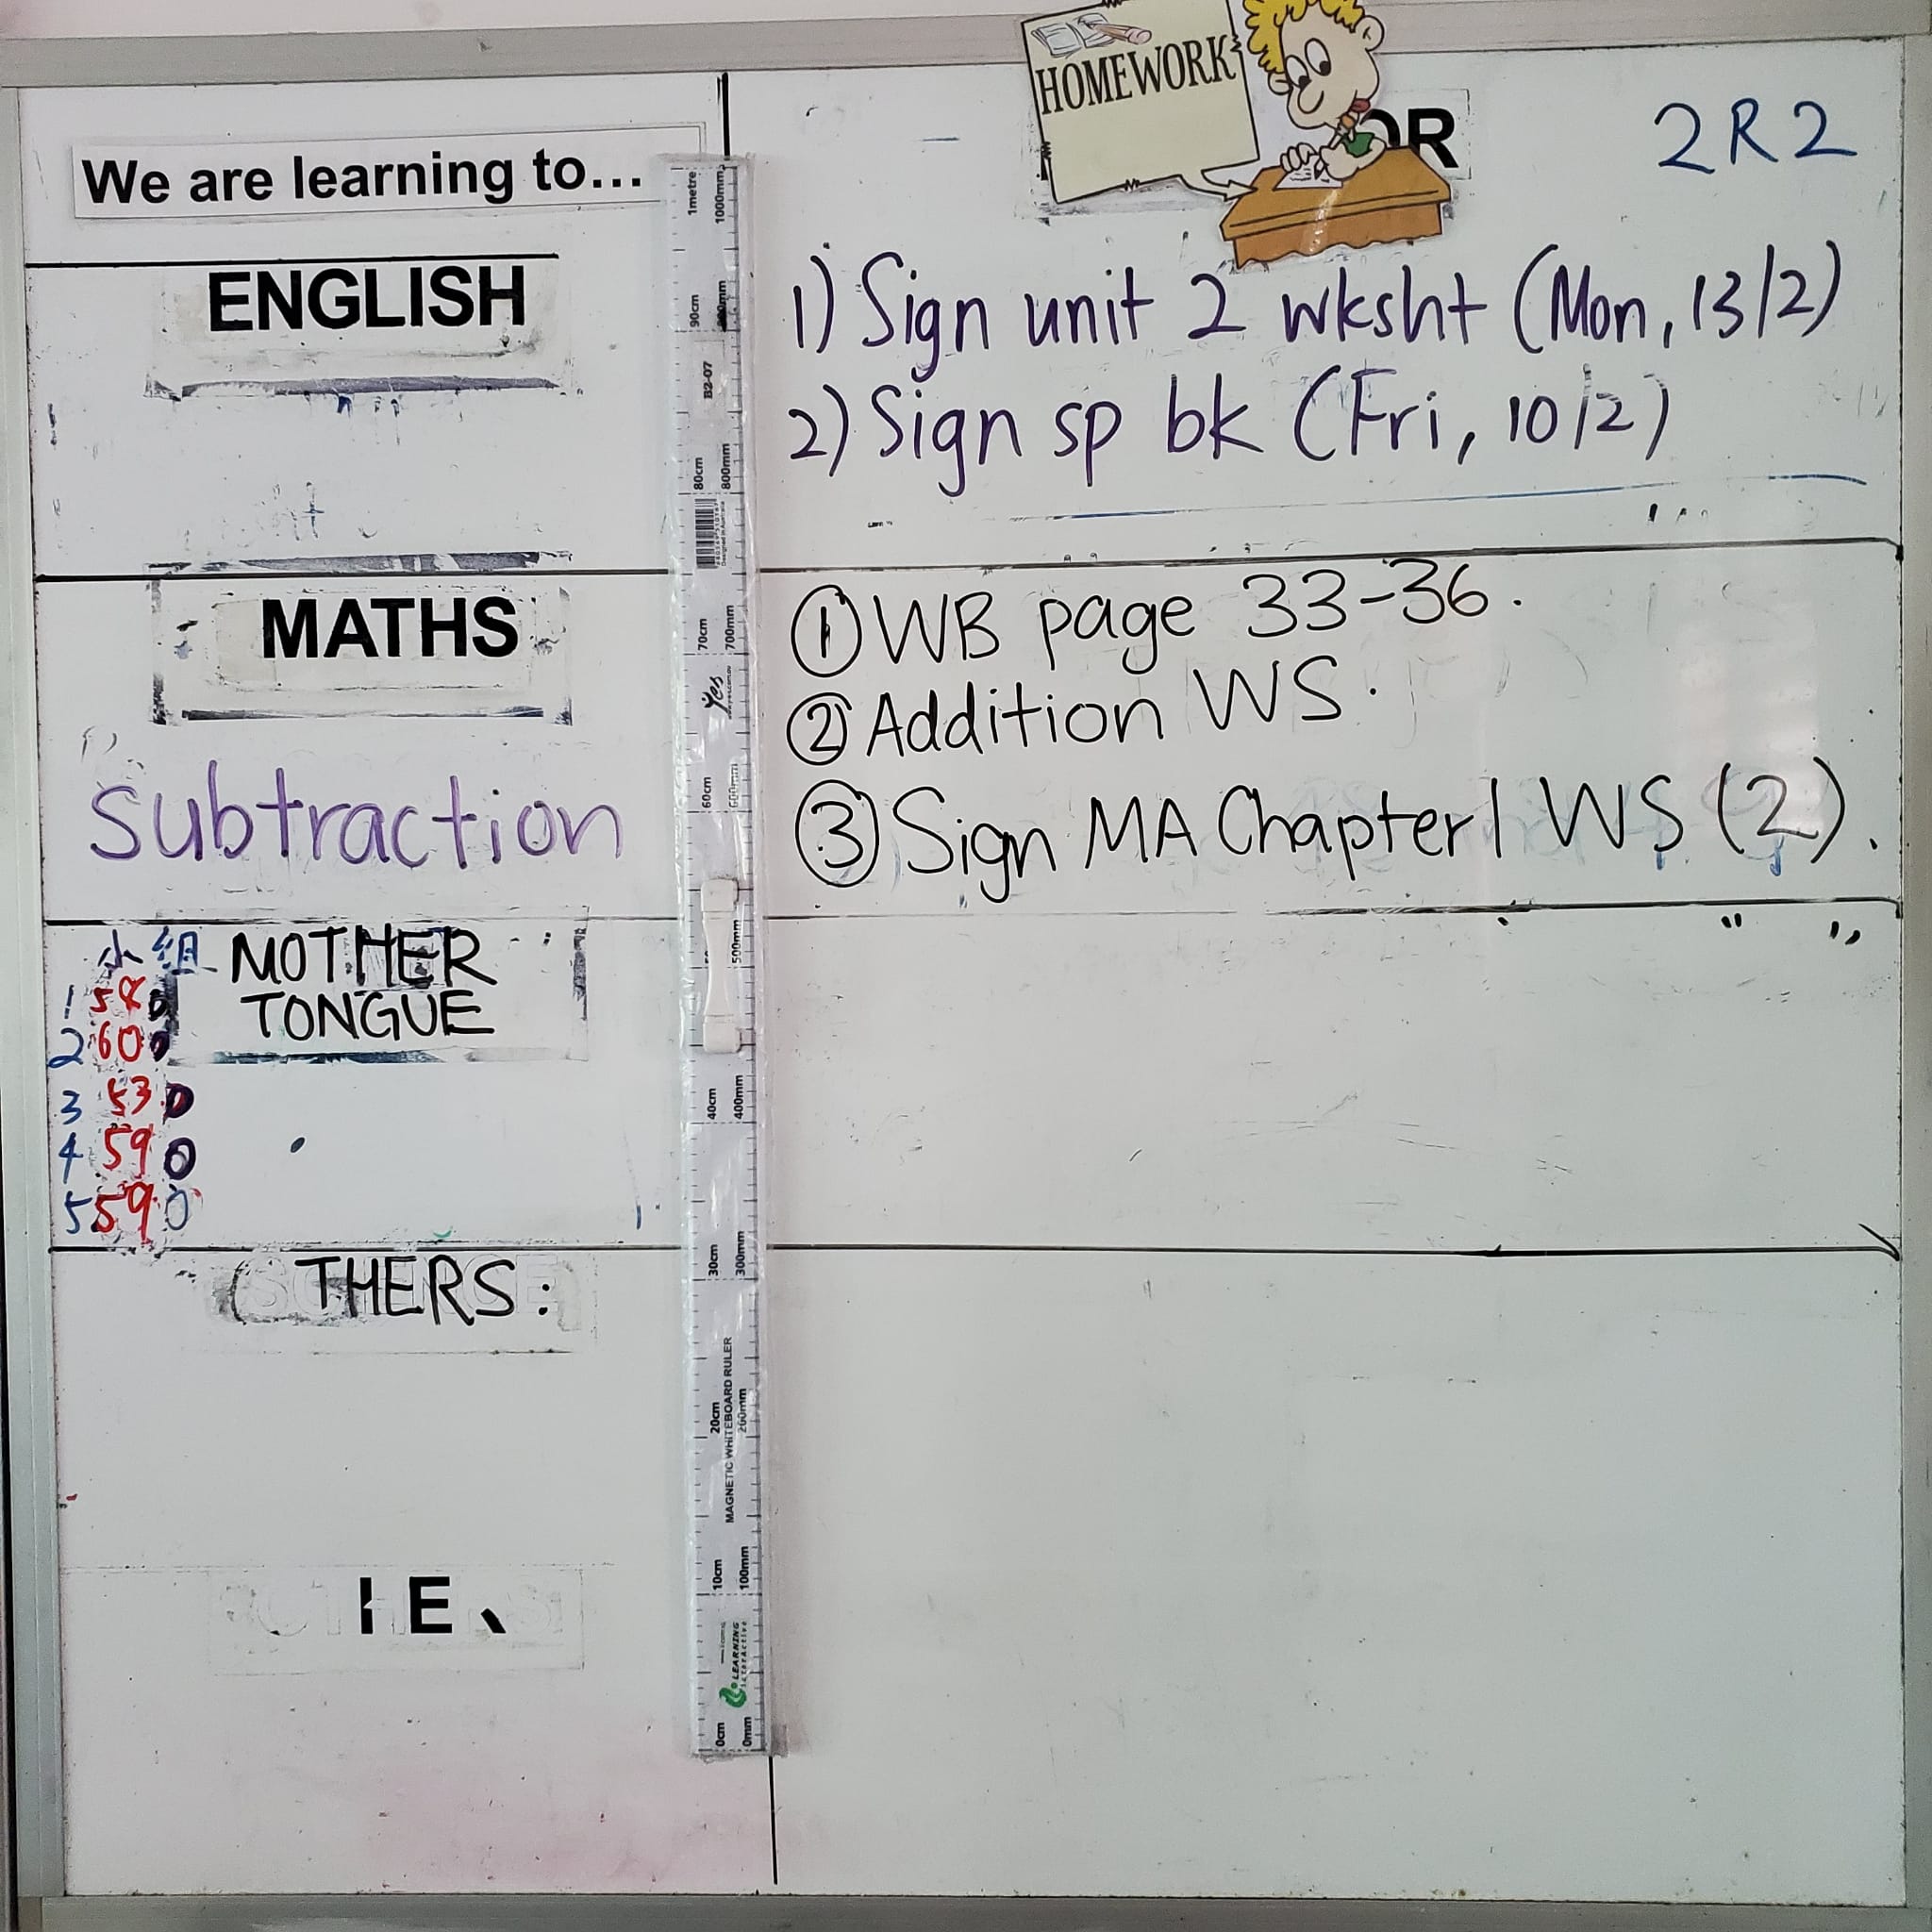 HOMEWORK
OR
2R2
We are learning to...
ENGLISH
1) Sign unit 2 wksht (Mon, 13/2)
2) Sign sp bk (Fri, 10/2)
MATHS
Subtraction
① WB page 33-36.
② Addition WS.
③ Sign MA Chapter 1 WS (2).
小组
MOTHER
TONGUE
1 58
2 60
3 53
4 59
5 59
THERS:
1metre 1000mm
90cm
B2-07
80cm 800mm
70cm 700mm
Yes
60cm 600mm
500mm
40cm 400mm
30cm 300mm
20cm 200mm
MAGNETIC WHITEBOARD RULER
10cm 100mm
LEARNING
0cm 0mm